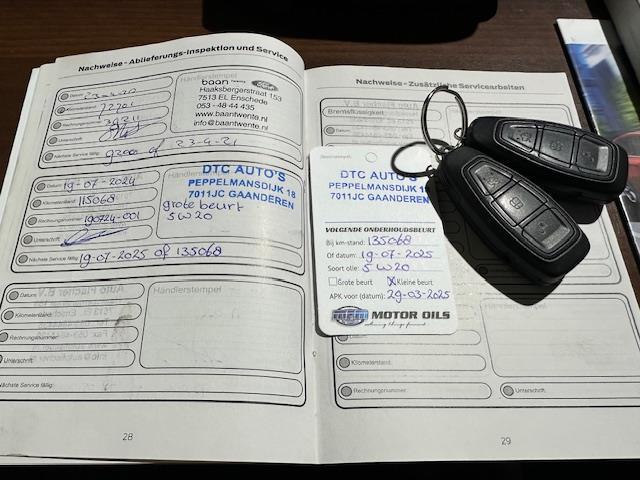 Nachweise - Ablieferungs-Inspektion und Service
Datum: 23-4-20
Kilometerstand:
Rechnungsnummer:
Unterschrift:
Nächste Service fällig: 92000 of 23-4-21
Händlerstempel
baan twente Ford
Haaksbergerstraat 153
7513 EL Enschede
053 - 48 44 435
www.baantwente.nl
info@baantwente.nl
Datum: 19-07-2024
Kilometerstand: 115068
Rechnungsnummer: 190724-001
Unterschrift:
Nächste Service fällig: 19-07-2025 of 135068
DTC AUTO'S
PEPPELMANSDIJK 18
7011JC GAANDEREN
grote beurt
5W20
Datum:
Kilometerstand:
Rechnungsnummer:
Unterschrift:
Nächste Service fällig:
Händlerstempel
28
Nachweise - Zusätzliche Servicearbeiten
Bremsflüssigkeit:
Datum:
DTC AUTO'S
PEPPELMANSDIJK 18
7011JC GAANDEREN
VOLGENDE ONDERHOUDSBEURT
Bij km-stand: 135068
Of datum: 19-07-2025
Soort olie: 5W20
Grote beurt Kleine beurt
APK voor (datum): 29-03-2025
MPM MOTOR OILS
Kilometerstand:
Rechnungsnummer:
Unterschrift:
29